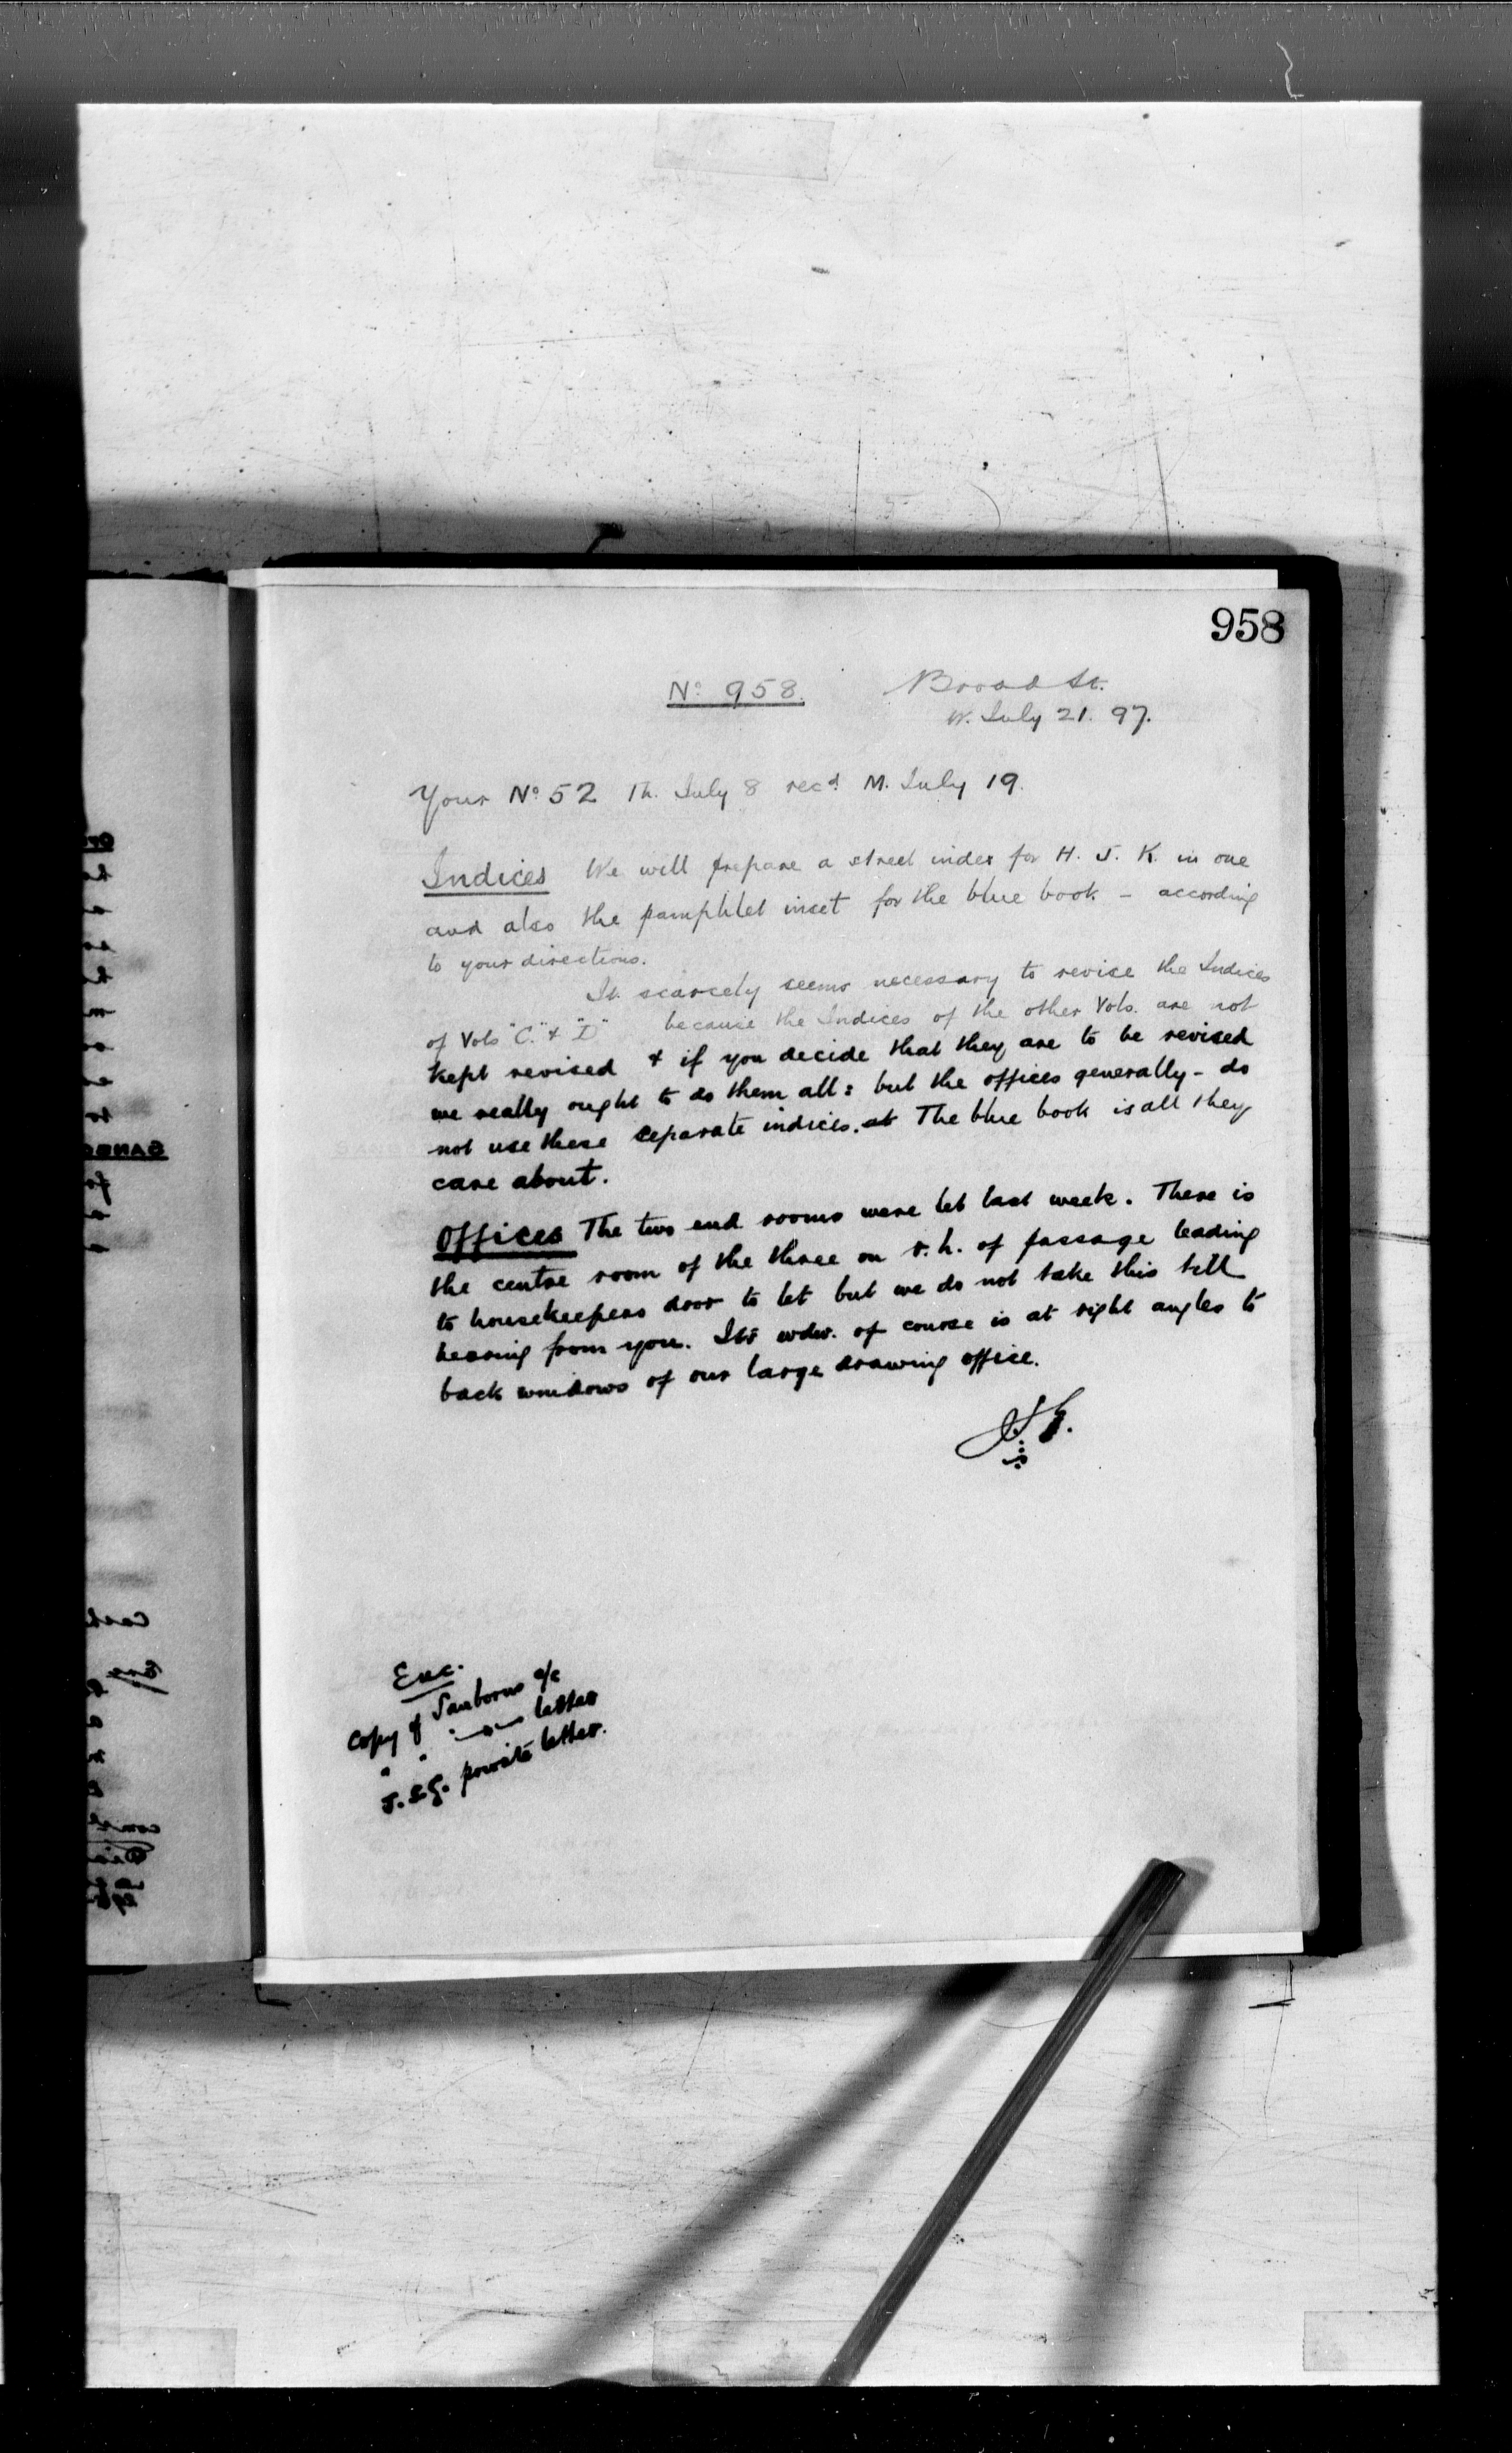 958
No. 958. Broad St.
W. July 21. 97.
Your No. 52 Th. July 8 recd. M. July 19.
Indices We will prepare a street index for H. J. K. in one
and also the pamphlet inset for the blue book - according
to your directions.
It scarcely seems necessary to revise the Indices
of Vols "C." & "D" because the Indices of the other Vols. are not
kept revised & if you decide that they are to be revised
we really ought to do them all: but the offices generally - do
not use these separate indices. at The blue book is all they
care about.
Offices The two end rooms were let last week. There is
the centre room of the three on r.h. of passage leading
to housekeepers door to let but we do not take this till
hearing from you. Its wdw. of course is at right angles to
back windows of our large drawing office.
Enc.
Copy of Sanborns a/c
" " letter
J.S.G. private letter.